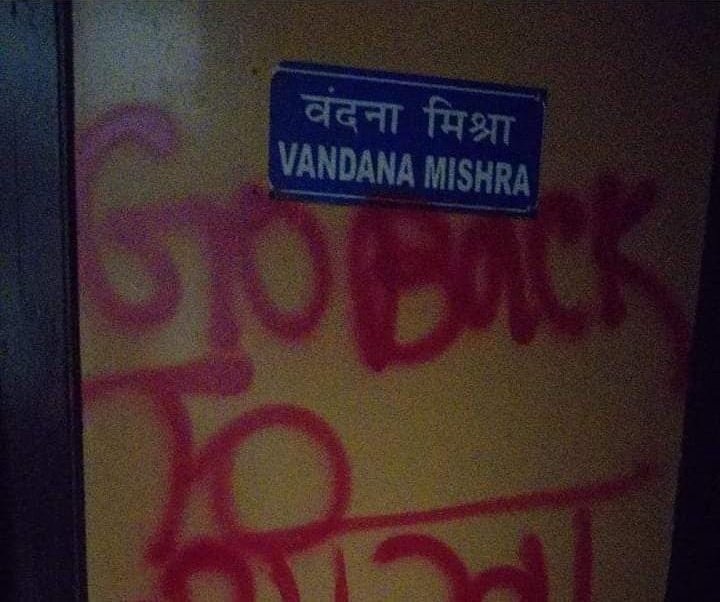 वंदना मिश्रा
VANDANA MISHRA
Go BacK
To